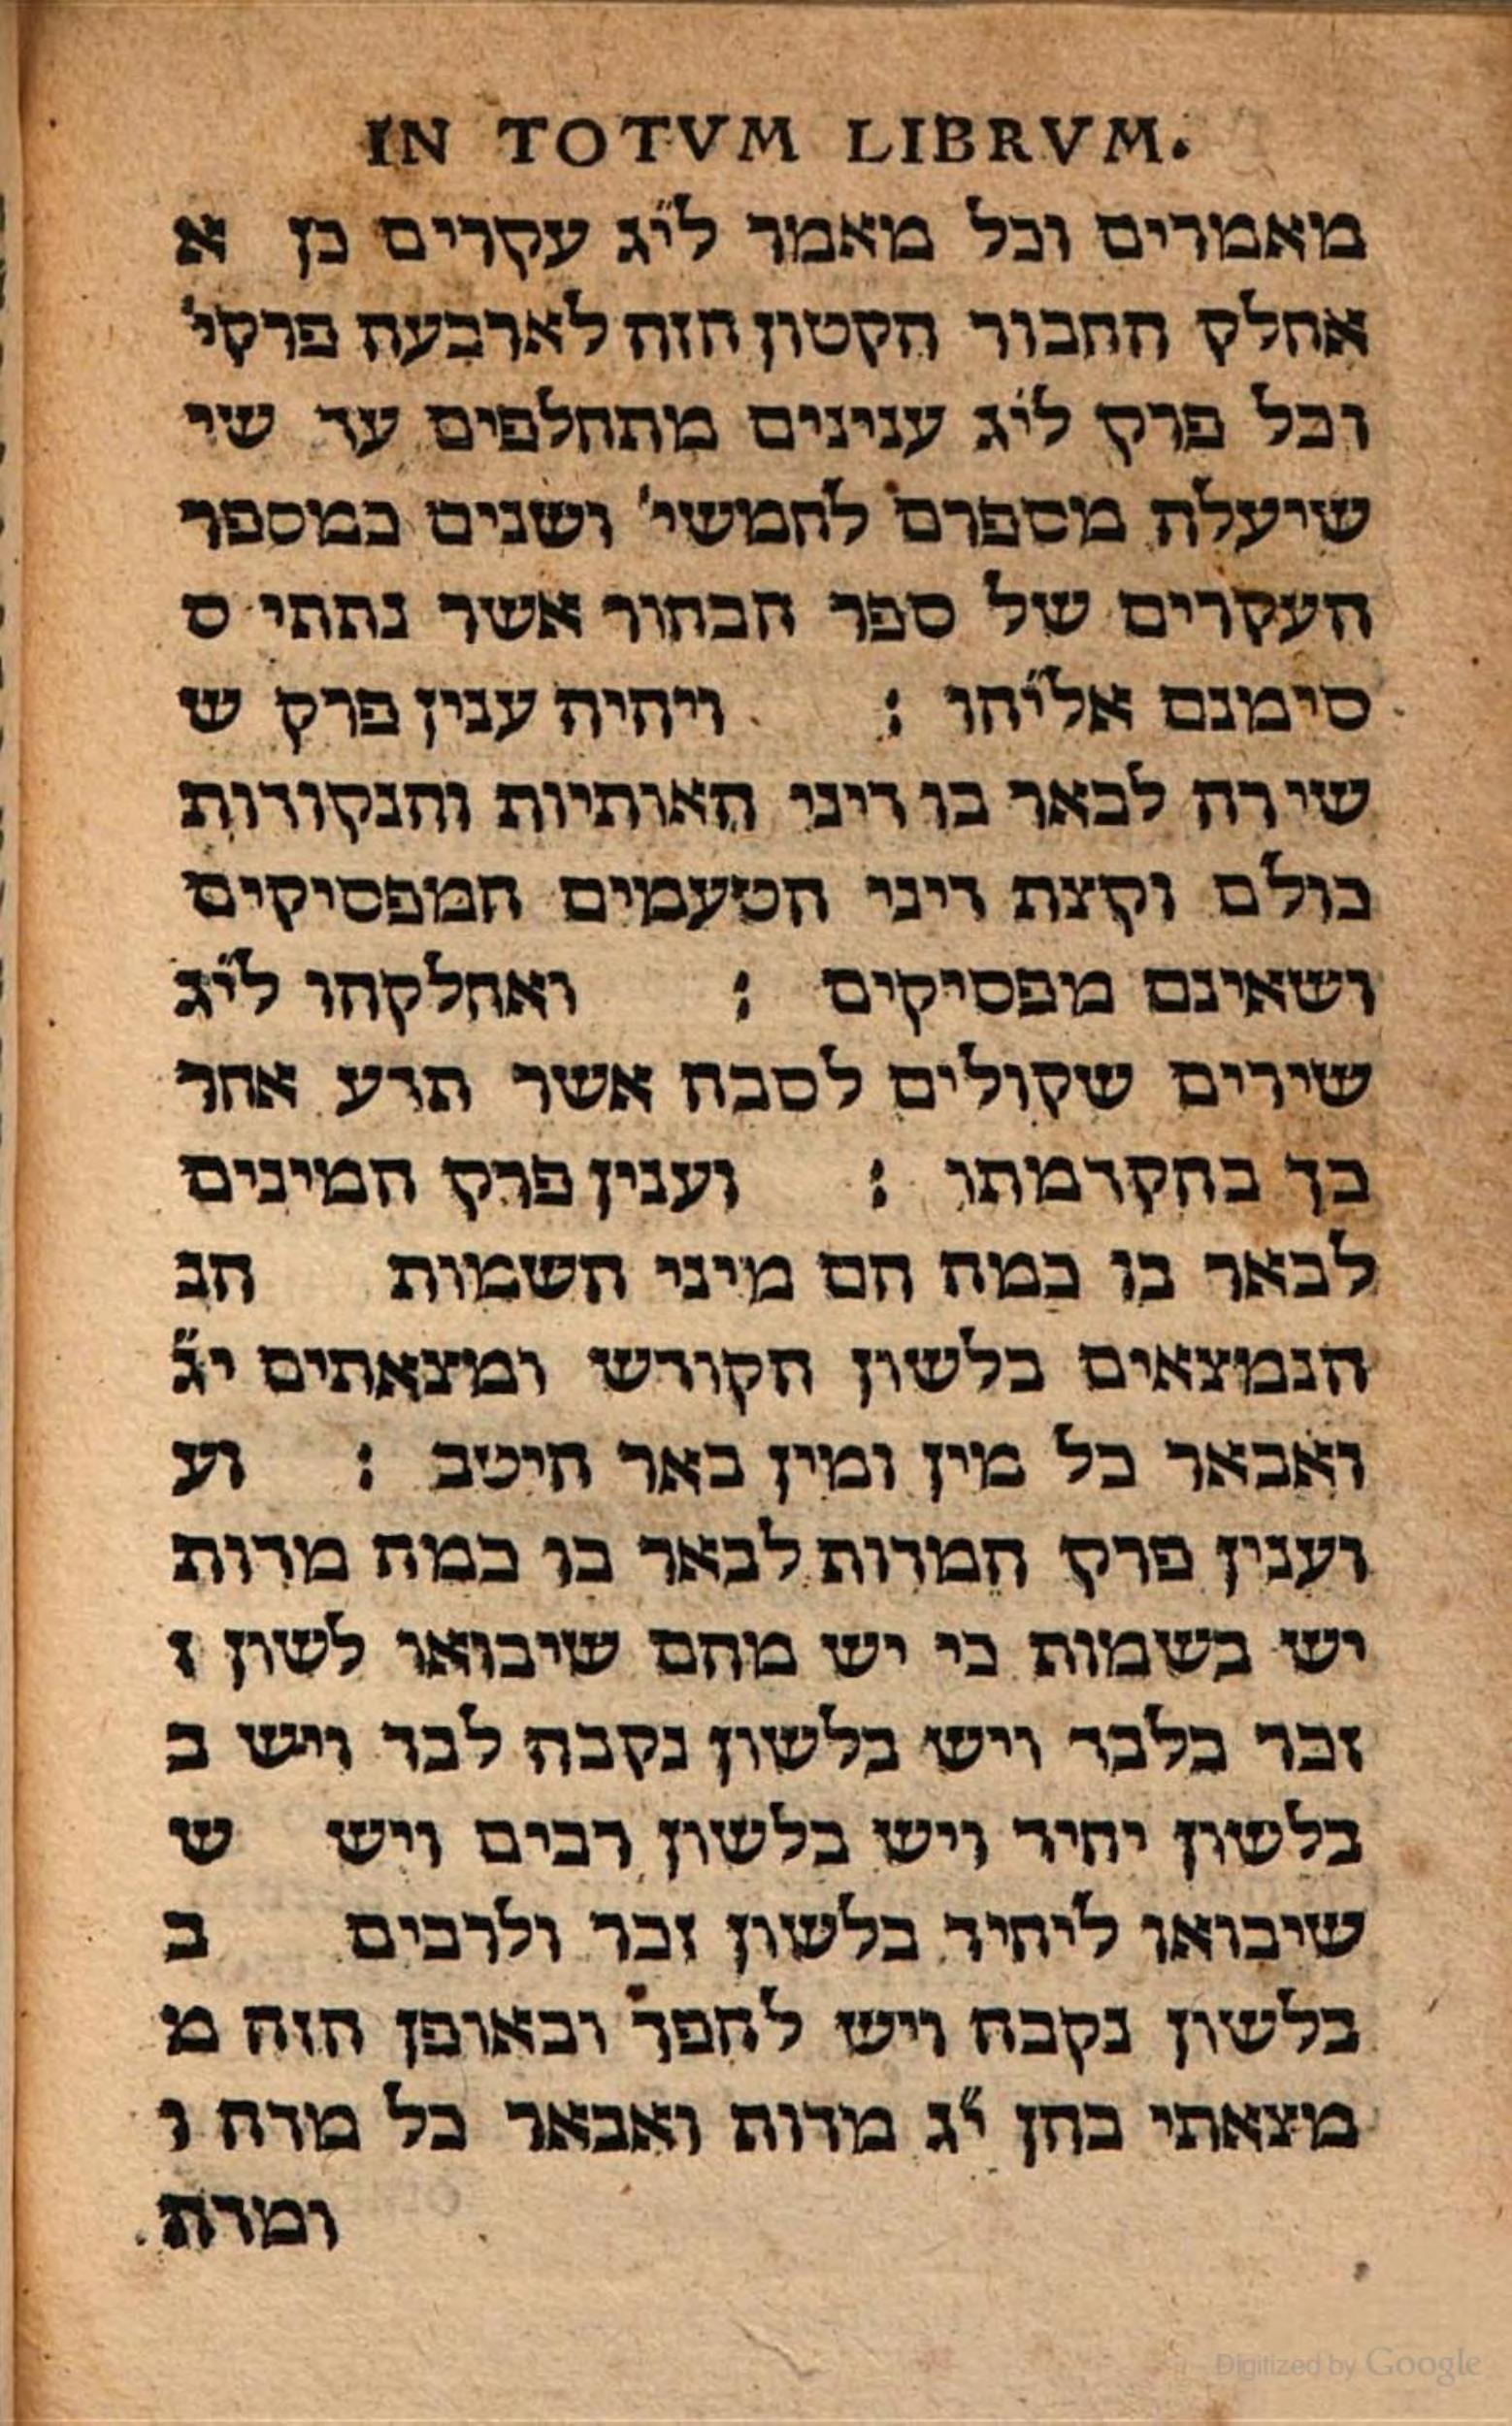 IN TOTVM LIBRVM.
מאמרים וכל מאמר לי״ג עקרים כן א
אחלק החבור הקטון הזה לארבעה פרקי'
וכל פרק לי״ג ענינים מתחלפים עד שי
שיעלה מספרם לחמשי' ושנים כמספר
העקרים של ספר הבחור אשר נתתי ס
סימנם אלי״הו : ויהיה ענין פרק ש
שירה לבאר בו דיני האותיות והנקודות
כולם וקצת דיני הטעמים המפסיקים
ושאינם מפסיקים : ואחלקהו לי״ג
שירים שקולים לסבה אשר תדע אחר
כך בהקדמתו : וענין פרק המינים
לבאר בו כמה הם מיני השמות הנ
הנמצאים בלשון הקודש ומצאתים י״ג
ואבאר כל מין ומין באר היטב : וע
וענין פרק המדות לבאר בו כמה מדות
יש בשמות כי יש מהם שיבואו לשון ז
זכר בלבד ויש בלשון נקבה לבד ויש ב
בלשון יחיד ויש בלשון רבים ויש ש
שיבואו ליחיד בלשון זכר ולרבים ב
בלשון נקבה ויש להפך ובאופן הזה מ
מצאתי בהן י״ג מדות ואבאר כל מדה ו
ומדה
Digitized by Google